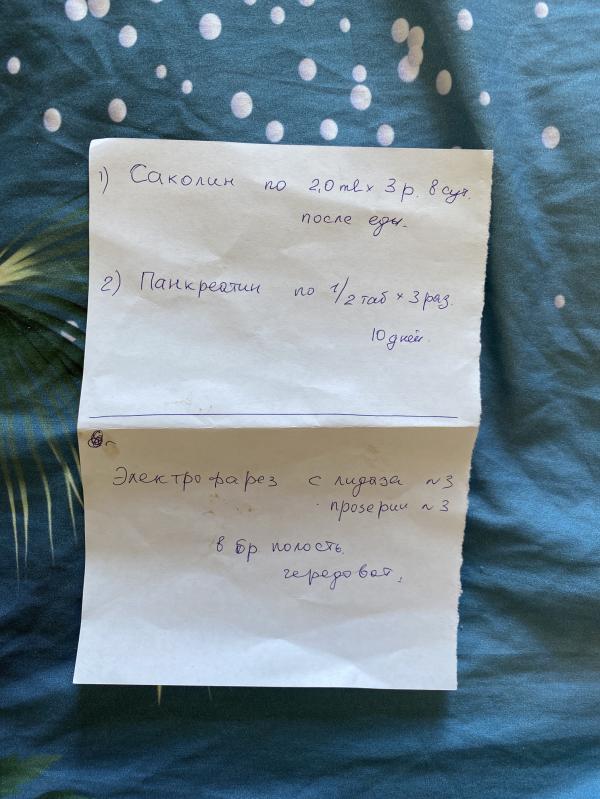 1) Саколин по 2,0 ml x 3 р. в сут.
после еды.
2) Панкреатин по 1/2 таб x 3 раз.
10 дней.
Электрофарез с лидаза ~3
прозерин ~3
в бр полость.
чередоват.